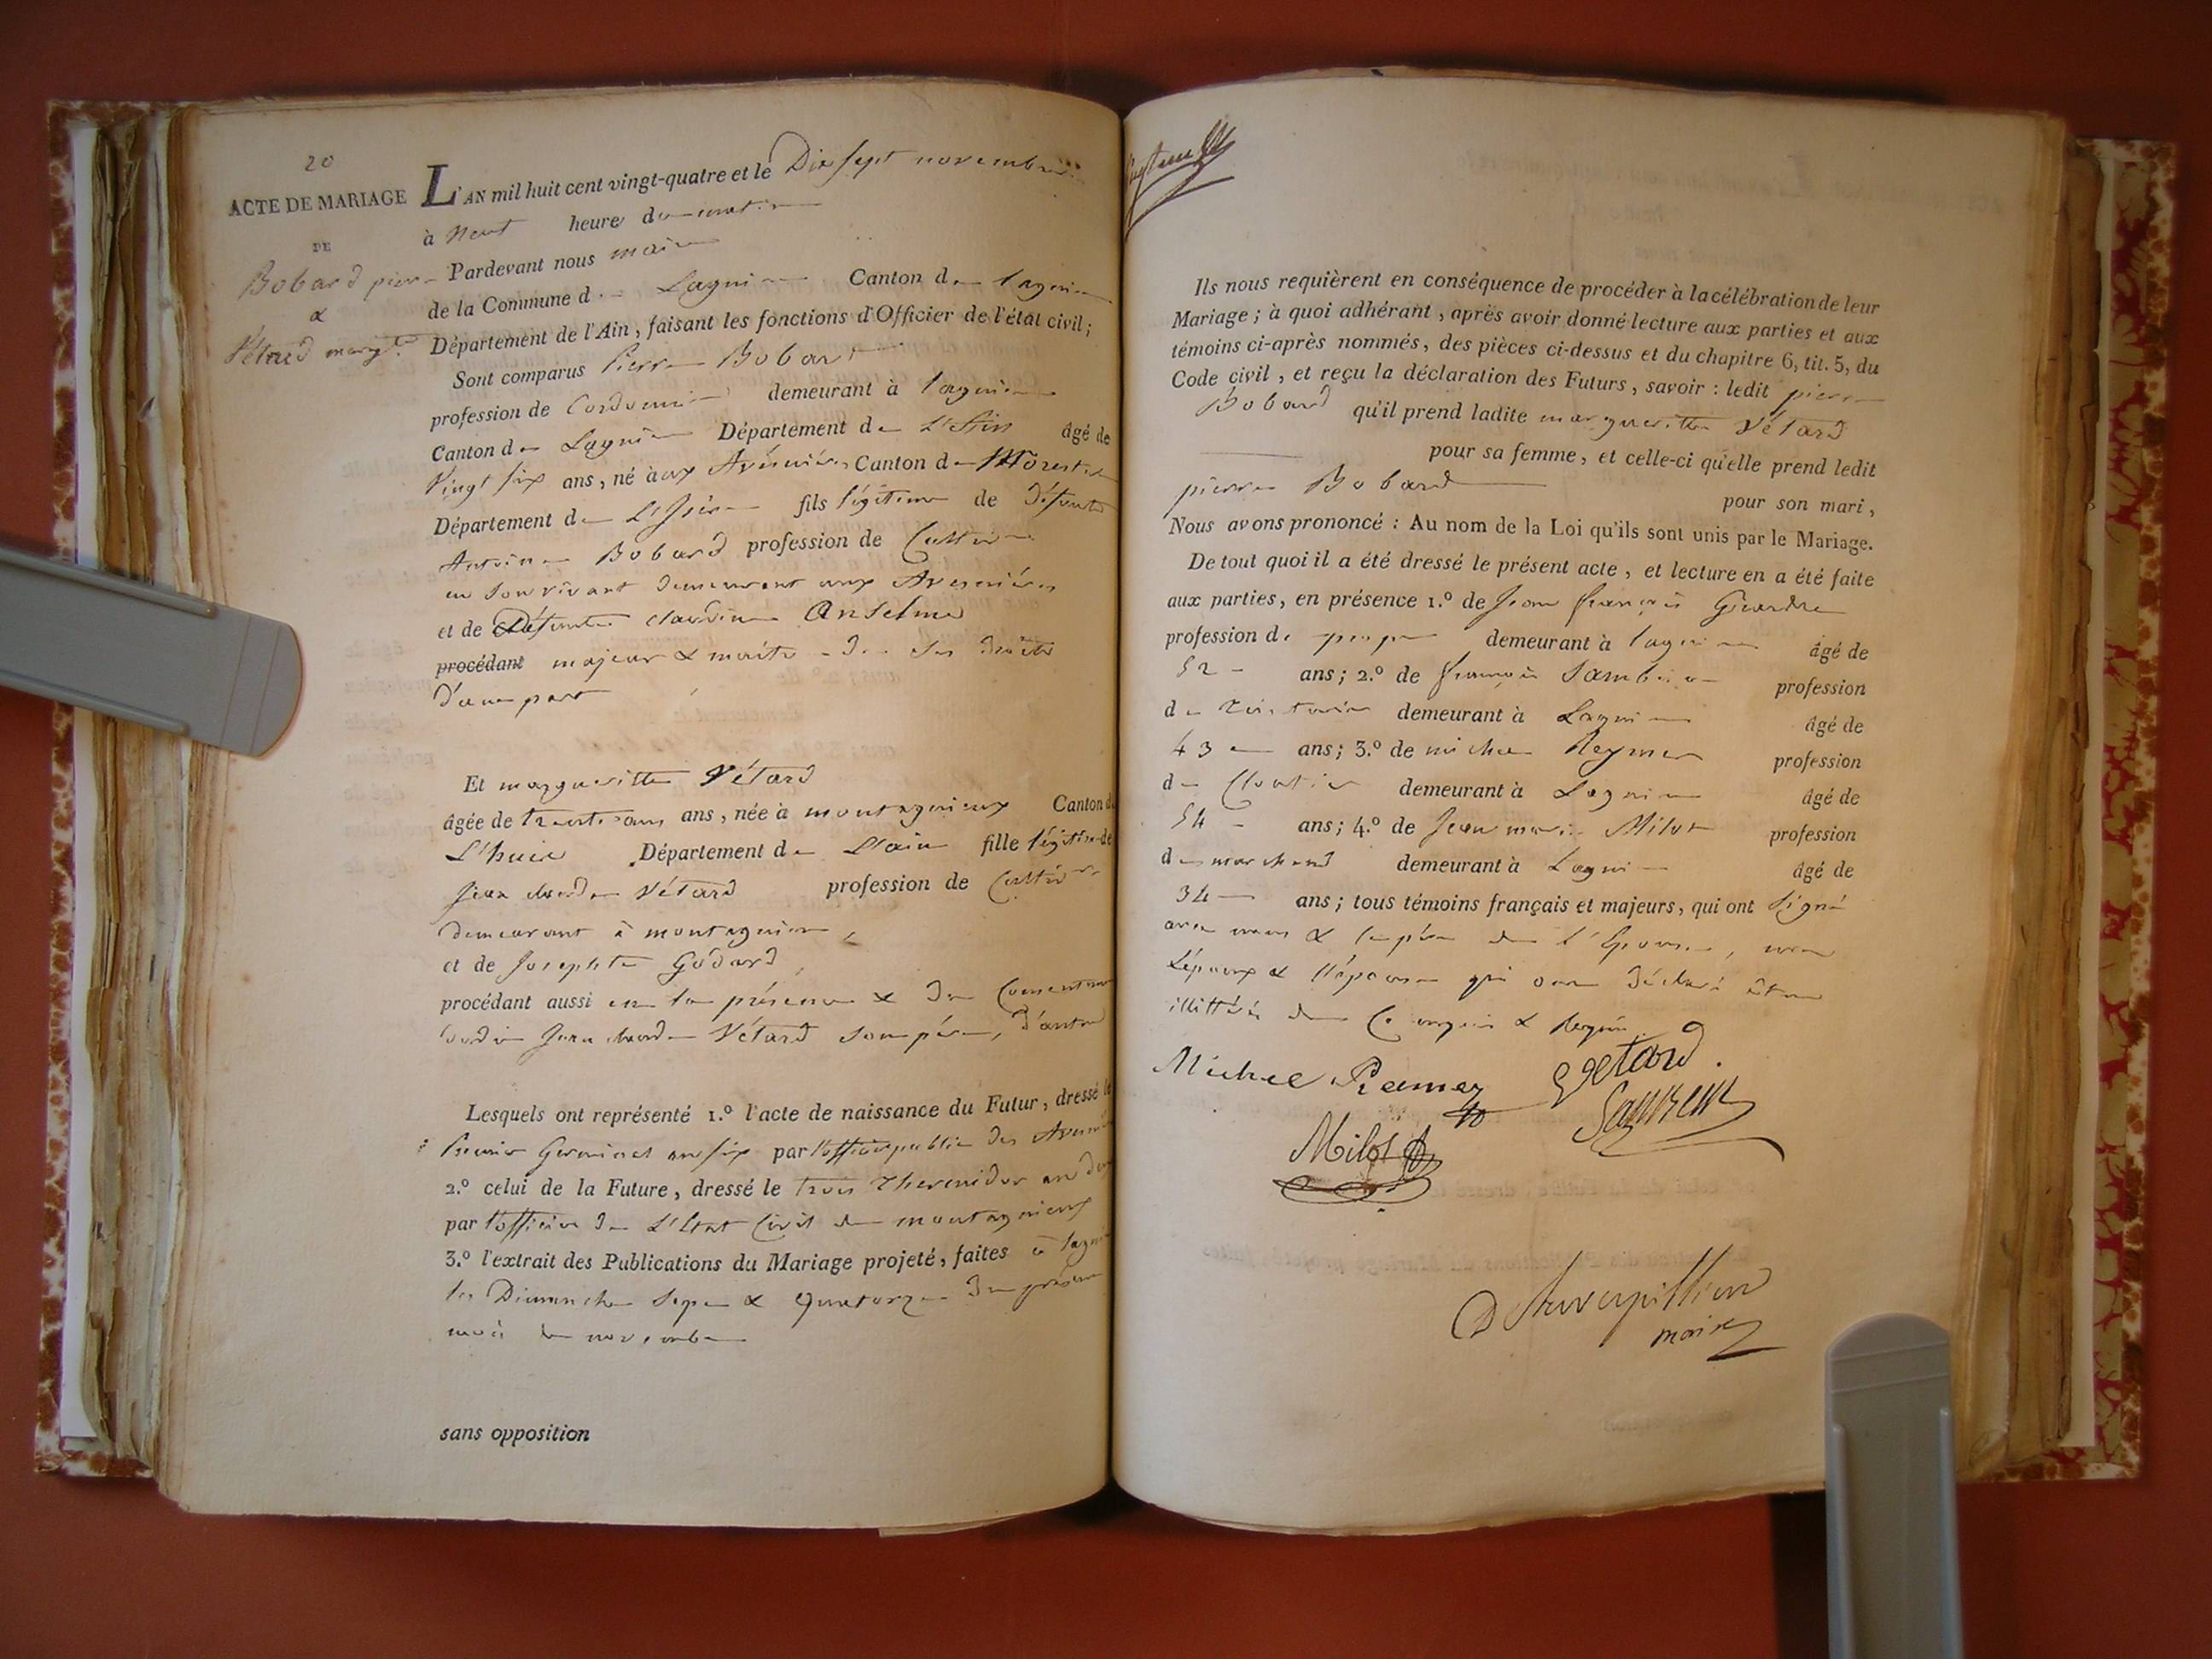 20
ACTE DE MARIAGE
DE
Bobard pierre
&
Vétard margte
L'AN mil huit cent vingt-quatre et le Dix sept novembre
à neuf heure du matin
Pardevant nous maire
de la Commune de Lagnieu Canton de lagnieu
Département de l'Ain, faisant les fonctions d'Officier de l'état civil;
Sont comparus Pierre Bobard
profession de Cordonnier demeurant à lagnieu
Canton de Lagnieu Département de L'Ain âgé de
Vingt six ans, né à aux Avénières Canton de Morestel
Département de L'Isère fils légitime de défunt
Antoine Bobard profession de Cultiv.
en son vivant demeurant aux Avesnières
et de Défunte claudine Anselme
procédant majeur & maitre de ses droits
d'une part
Et margueritte Vétard
âgée de trente ans, née à montagnieux Canton de
L'huis Département de L'ain fille légitime de
Jean claude Vétard profession de Cultiv.
demeurant à montagnieu,
et de Josephte Godard,
procédant aussi en la présence & du Consentement
dudit Jean claude Vétard son père, d'autre
Lesquels ont représenté 1.º l'acte de naissance du Futur, dressé le
Premier Germinal an six par l'officier public des
2.º celui de la Future, dressé le trois Thermidor an
par l'officier de L'Etat Civil de montagnieux
3.º l'extrait des Publications du Mariage projeté, faites à
les Dimanche Sept & Quatorze du présent
mois de novembre
sans opposition
Ils nous requièrent en conséquence de procéder à la célébration de leur
Mariage; à quoi adhérant, après avoir donné lecture aux parties et aux
témoins ci-après nommés, des pièces ci-dessus et du chapitre 6, tit. 5, du
Code civil, et reçu la déclaration des Futurs, savoir: ledit pierre
Bobard qu'il prend ladite margueritte Vétard
pour sa femme, et celle-ci qu'elle prend ledit
pierre Bobard pour son mari,
Nous avons prononcé: Au nom de la Loi qu'ils sont unis par le Mariage.
De tout quoi il a été dressé le présent acte, et lecture en a été faite
aux parties, en présence 1.º de Jean françois
profession de demeurant à lagnieu âgé de
52 ans; 2.º de françois profession
de demeurant à Lagnieu âgé de
43 ans; 3.º de michel profession
de Cloutier demeurant à Lagnieu âgé de
54 ans; 4.º de Jean marie Milot profession
de marchand demeurant à Lagnieu âgé de
34 ans; tous témoins français et majeurs, qui ont signé
avec nous & le père de l'Epouse, non
L'époux & l'épouse qui ont déclaré être
illittérés de ce enquis & requis
Michel Ramez
Vetard.
Milot
maire